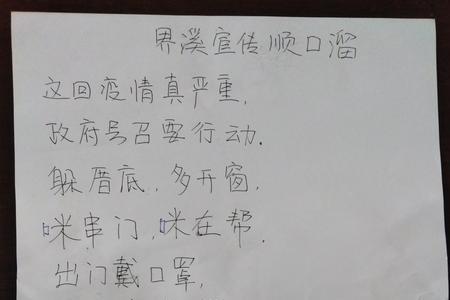 界溪宣传顺口溜
这回疫情真严重,
政府号召要行动.
躲厝底,多开窗,
咪串门,咪在帮.
出门戴口罩,